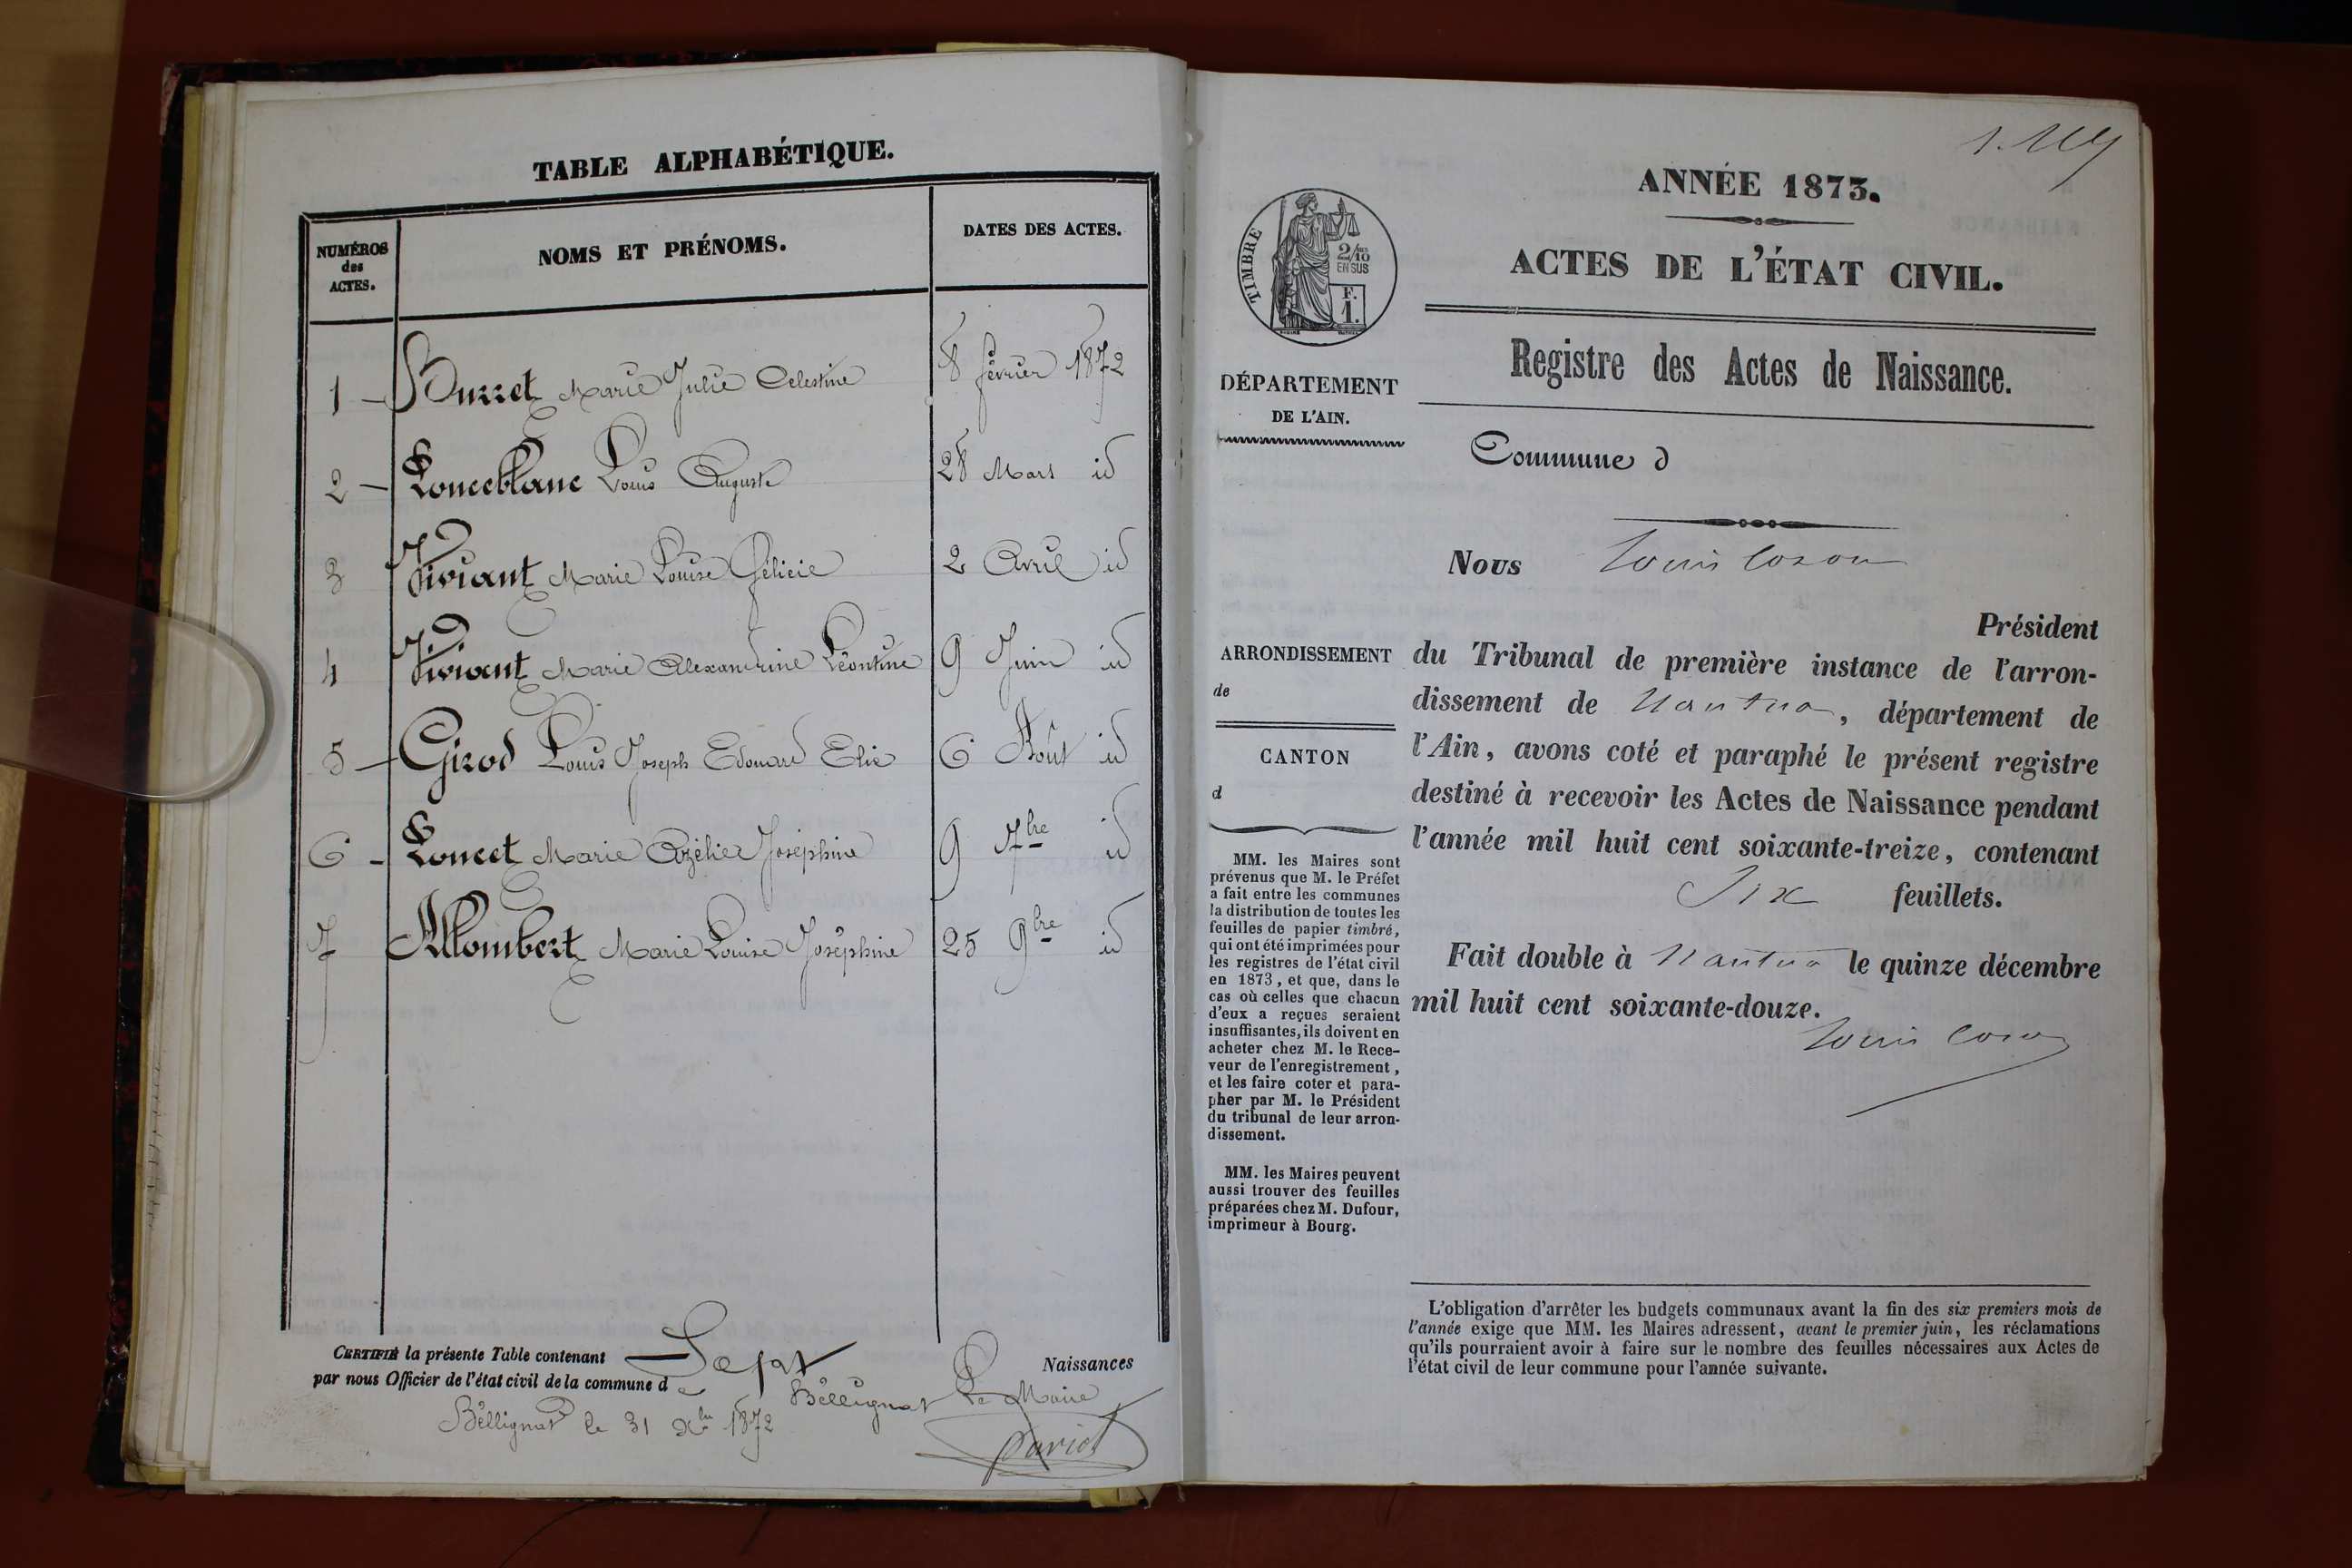 TABLE ALPHABÉTIQUE.
NUMÉROS
des
ACTES.
NOMS ET PRÉNOMS.
DATES DES ACTES.
1 - Burret Marie Julie Celestine 8 février 1872
2 - Ponceblanc Louis Auguste 28 Mars id
3 Viviant Marie Louise Félicie 2 Avril id
4 Viviant Marie Alexandrine Léontine 9 Juin id
5 - Girod Louis Joseph Edouard Elie 6 Août id
6 - Poncet Marie Azélie Joséphine 9 7bre id
7 Allombert Marie Louise Joséphine 25 9bre id
CERTIFIÉ la présente Table contenant Sept Naissances
par nous Officier de l'état civil de la commune de Béllignat Le Maire
Béllignat le 31 Xbre 1872
ANNÉE 1873.
ACTES DE L'ÉTAT CIVIL.
Registre des Actes de Naissance.
TIMBRE
2/10
EN SUS
F.
1.
DÉPARTEMENT
DE L'AIN.
Commune d
Nous Louis Cozon
Président
du Tribunal de première instance de l'arron-
dissement de Nantua, département de
l'Ain, avons coté et paraphé le présent registre
destiné à recevoir les Actes de Naissance pendant
l'année mil huit cent soixante-treize, contenant
Six feuillets.
Fait double à Nantua le quinze décembre
mil huit cent soixante-douze.
Louis Cozon
ARRONDISSEMENT
de
CANTON
d
MM. les Maires sont
prévenus que M. le Préfet
a fait entre les communes
la distribution de toutes les
feuilles de papier timbré,
qui ont été imprimées pour
les registres de l'état civil
en 1873, et que, dans le
cas où celles que chacun
d'eux a reçues seraient
insuffisantes, ils doivent en
acheter chez M. le Rece-
veur de l'enregistrement,
et les faire coter et para-
pher par M. le Président
du tribunal de leur arron-
dissement.
MM. les Maires peuvent
aussi trouver des feuilles
préparées chez M. Dufour,
imprimeur à Bourg.
L'obligation d'arrêter les budgets communaux avant la fin des six premiers mois de
l'année exige que MM. les Maires adressent, avant le premier juin, les réclamations
qu'ils pourraient avoir à faire sur le nombre des feuilles nécessaires aux Actes de
l'état civil de leur commune pour l'année suivante.